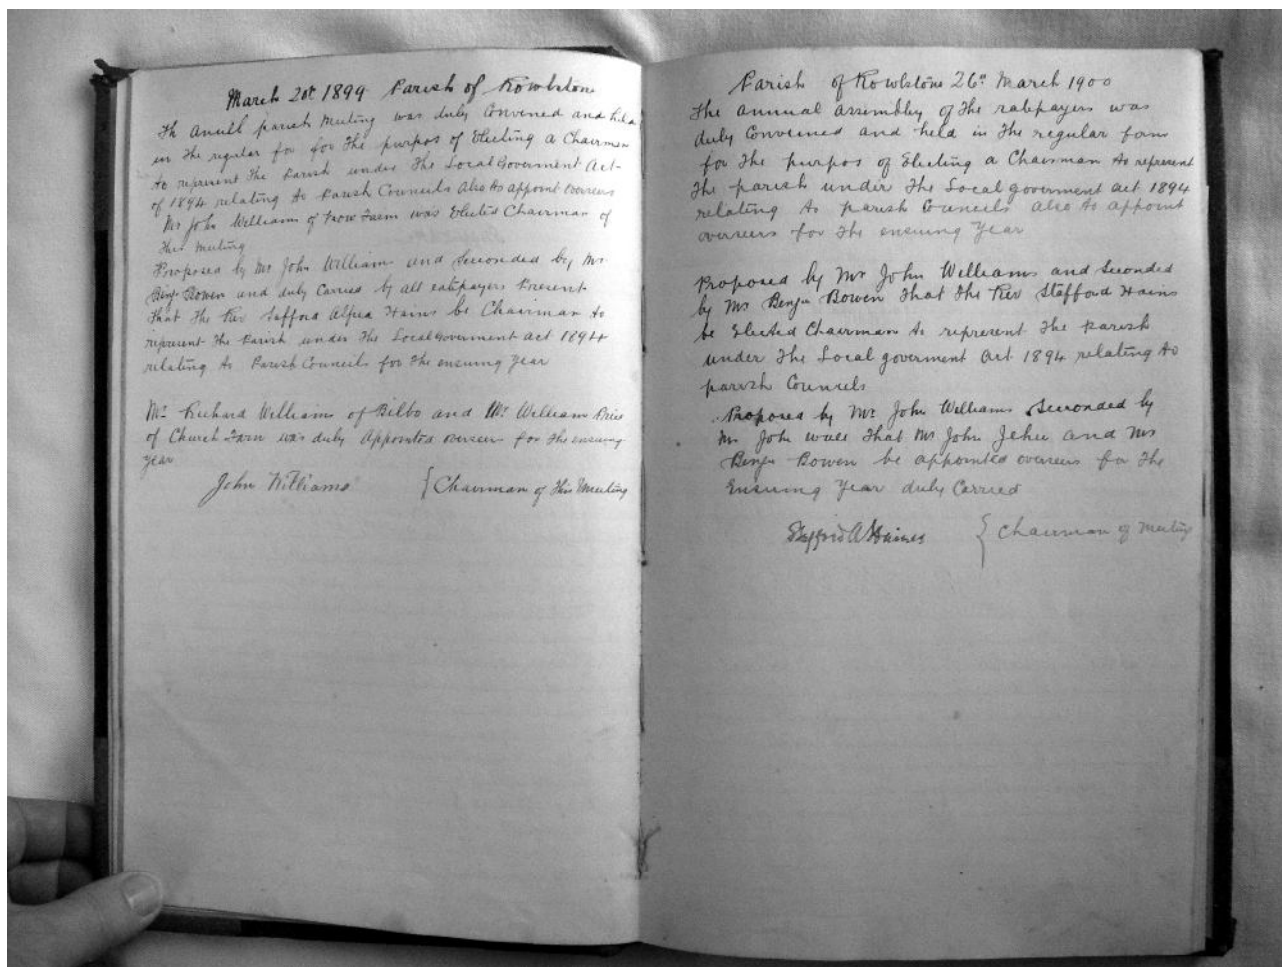 March 20t 1899 Parish of Rowlstone
Th anuell parish Meeting was duly Convened and held
in The regular for for The purpos of Electing a Chairman
to represent The Parish under The Local Goverment Act
of 1894 relating to Parish Councils Also to appoint overseers
Mr John Williams of Trow Farm was Elected Chairman of
This Meeting
Proposed by Mr John Williams and Seconded by Mr
Benjn Bowen and duly Carried by all ratepayers Present
That The Rev Stafford Hains be Chairman to
represent The Parish under The Local Goverment act 1894
relating to Parish Councils for The ensuing Year
Mr Richard Williams of Bilbo and Mr William Price
of Church Farm was duly Appointed overseers for The ensuing
year
John Williams { Chairman of This Meeting
Parish of Rowlstone 26th March 1900
The annual assembley of The ratepayers was
duly Conveined and held in The regular form
for The purpos of Electing a Chairman to represent
The parish under The Local goverment act 1894
relating to parish Councils also to appoint
overseers for The ensuing Year
Proposed by Mr John Williams and Seconded
by Mr Benjn Bowen That The Rev Stafford Hains
be Elected Chairman to represent The parish
under The Local goverment act 1894 relating to
parish Councils
Proposed by Mr John Williams Seconded by
Mr John That Mr John Jehu and Mr
Benjn Bowen be appointed overseers for The
Ensuing Year duly Carried
Stafford A Haines { Chairman of Meeting